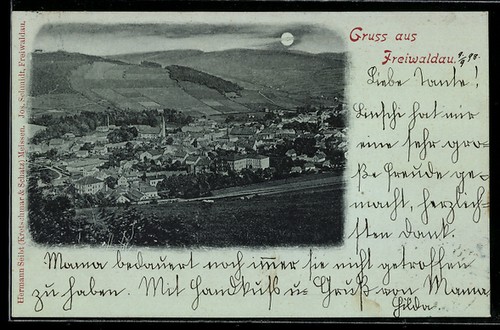 Gruss aus
Freiwaldau.
9/9 98.
Liebe Tante!
Linschi hat mir
eine sehr gro-
ße Freude ge-
macht, herzlich-
sten Dank.
Mama bedauert noch immer sie nicht getroffen
zu haben. Mit Handkuß u. Gruß von Mama
Hilda
Hermann Seibt (Kretschmar & Schatz) Meissen. Jos. Schmidt, Freiwaldau.